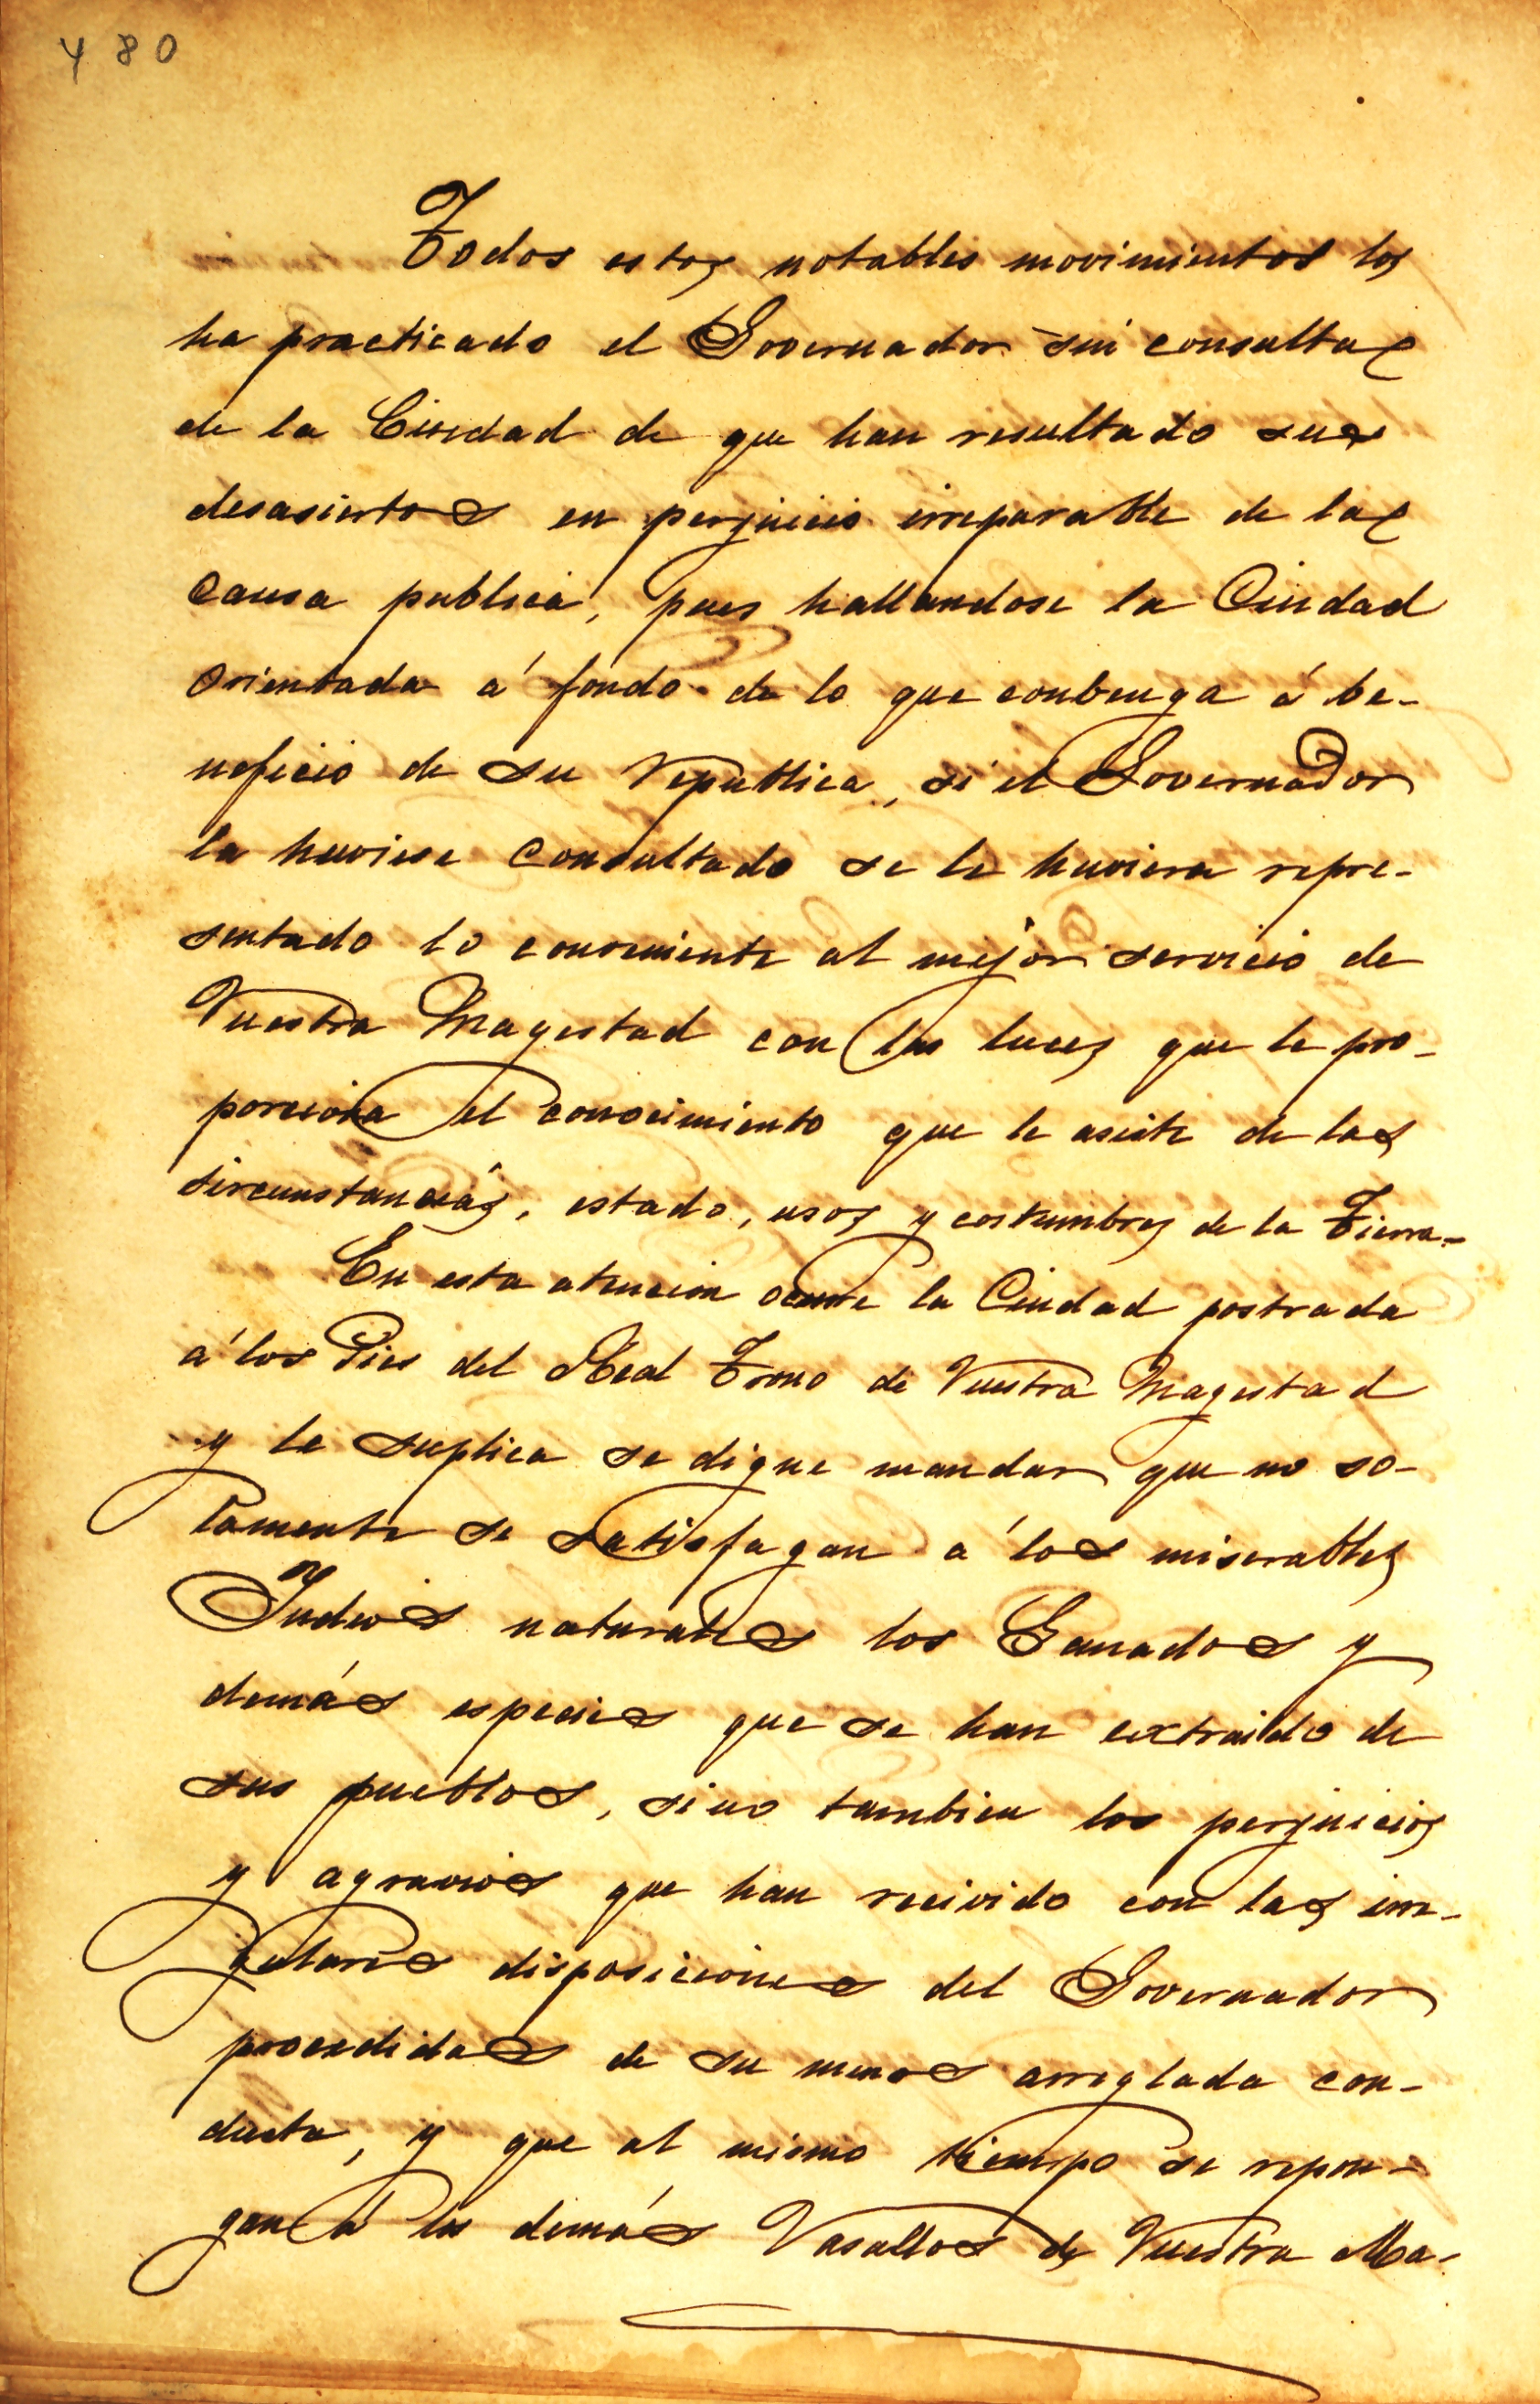 480
Todos estos notables movimientos los
ha practicado el Governador sin consulta
de la Ciudad de que han resultado sus
desasiertos en perjuicio irreparable de la
Causa publica, pues hallandose la Ciudad
Orientada á fondo de lo que conbenga á be-
neficio de su Republica, si el Governador
la huviese Consultado se le huviera repre-
sentado lo conveniente al mejor servicio de
Vuestra Magestad con las luces que le pro-
porciona el conocimiento que le asiste de las
sircunstancias, estado, usos y costumbres de la Tierra.-
En esta atencion ocurre la Ciudad postrada
á los Pies del Real Trono de Vuestra Magestad
y le suplica se digne mandar que no so-
lamente se satisfagan á los miserables
Indios naturales los Ganados y
demás especies que se han extraido de
sus pueblos, sino tambien los perjuicios
y agravios que han recivido con las irre-
gulares disposiciones del Governador
procedidas de su menos arreglada con-
ducta, y que al mismo tiempo se repon-
gan á los demás Vasallos de Vuestra Ma-